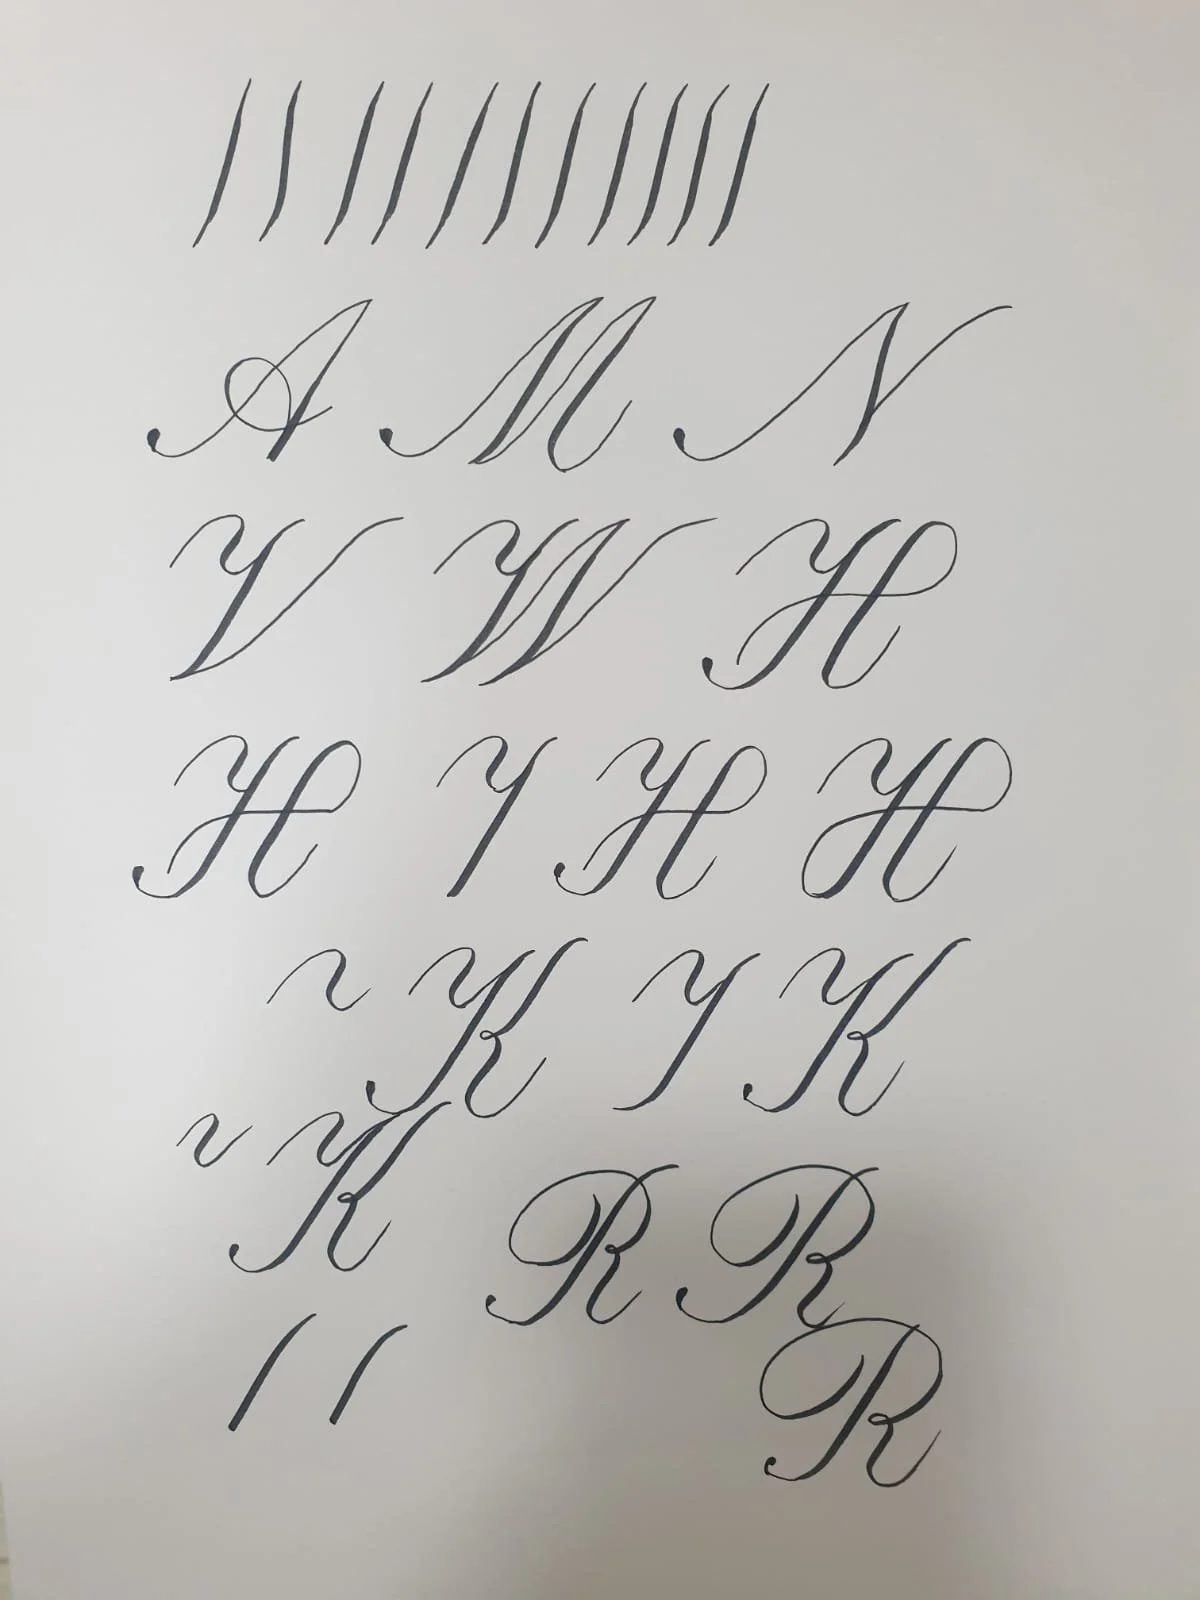 A M N
V W H
H I H H
K I K
K R R
R